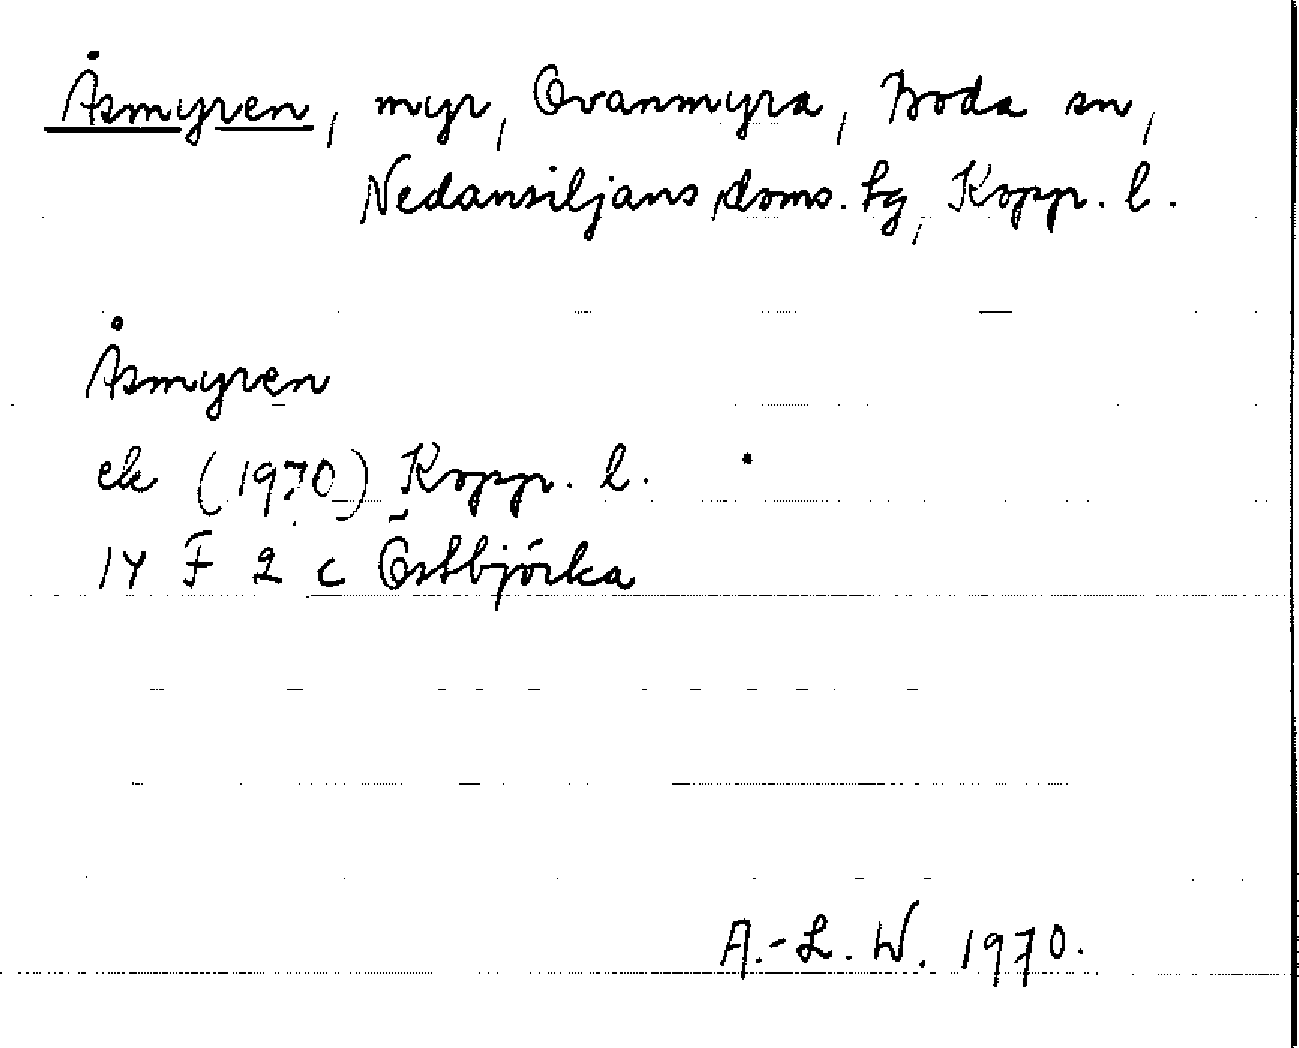 Åsmyren, myr, Ovanmyra, Boda sn,
Nedansiljans doms. tg, Kopp. l.
Åsmyren
ek (1970) Kopp. l.
14 F 2 c Östbjörka
A.-L. W. 1970.